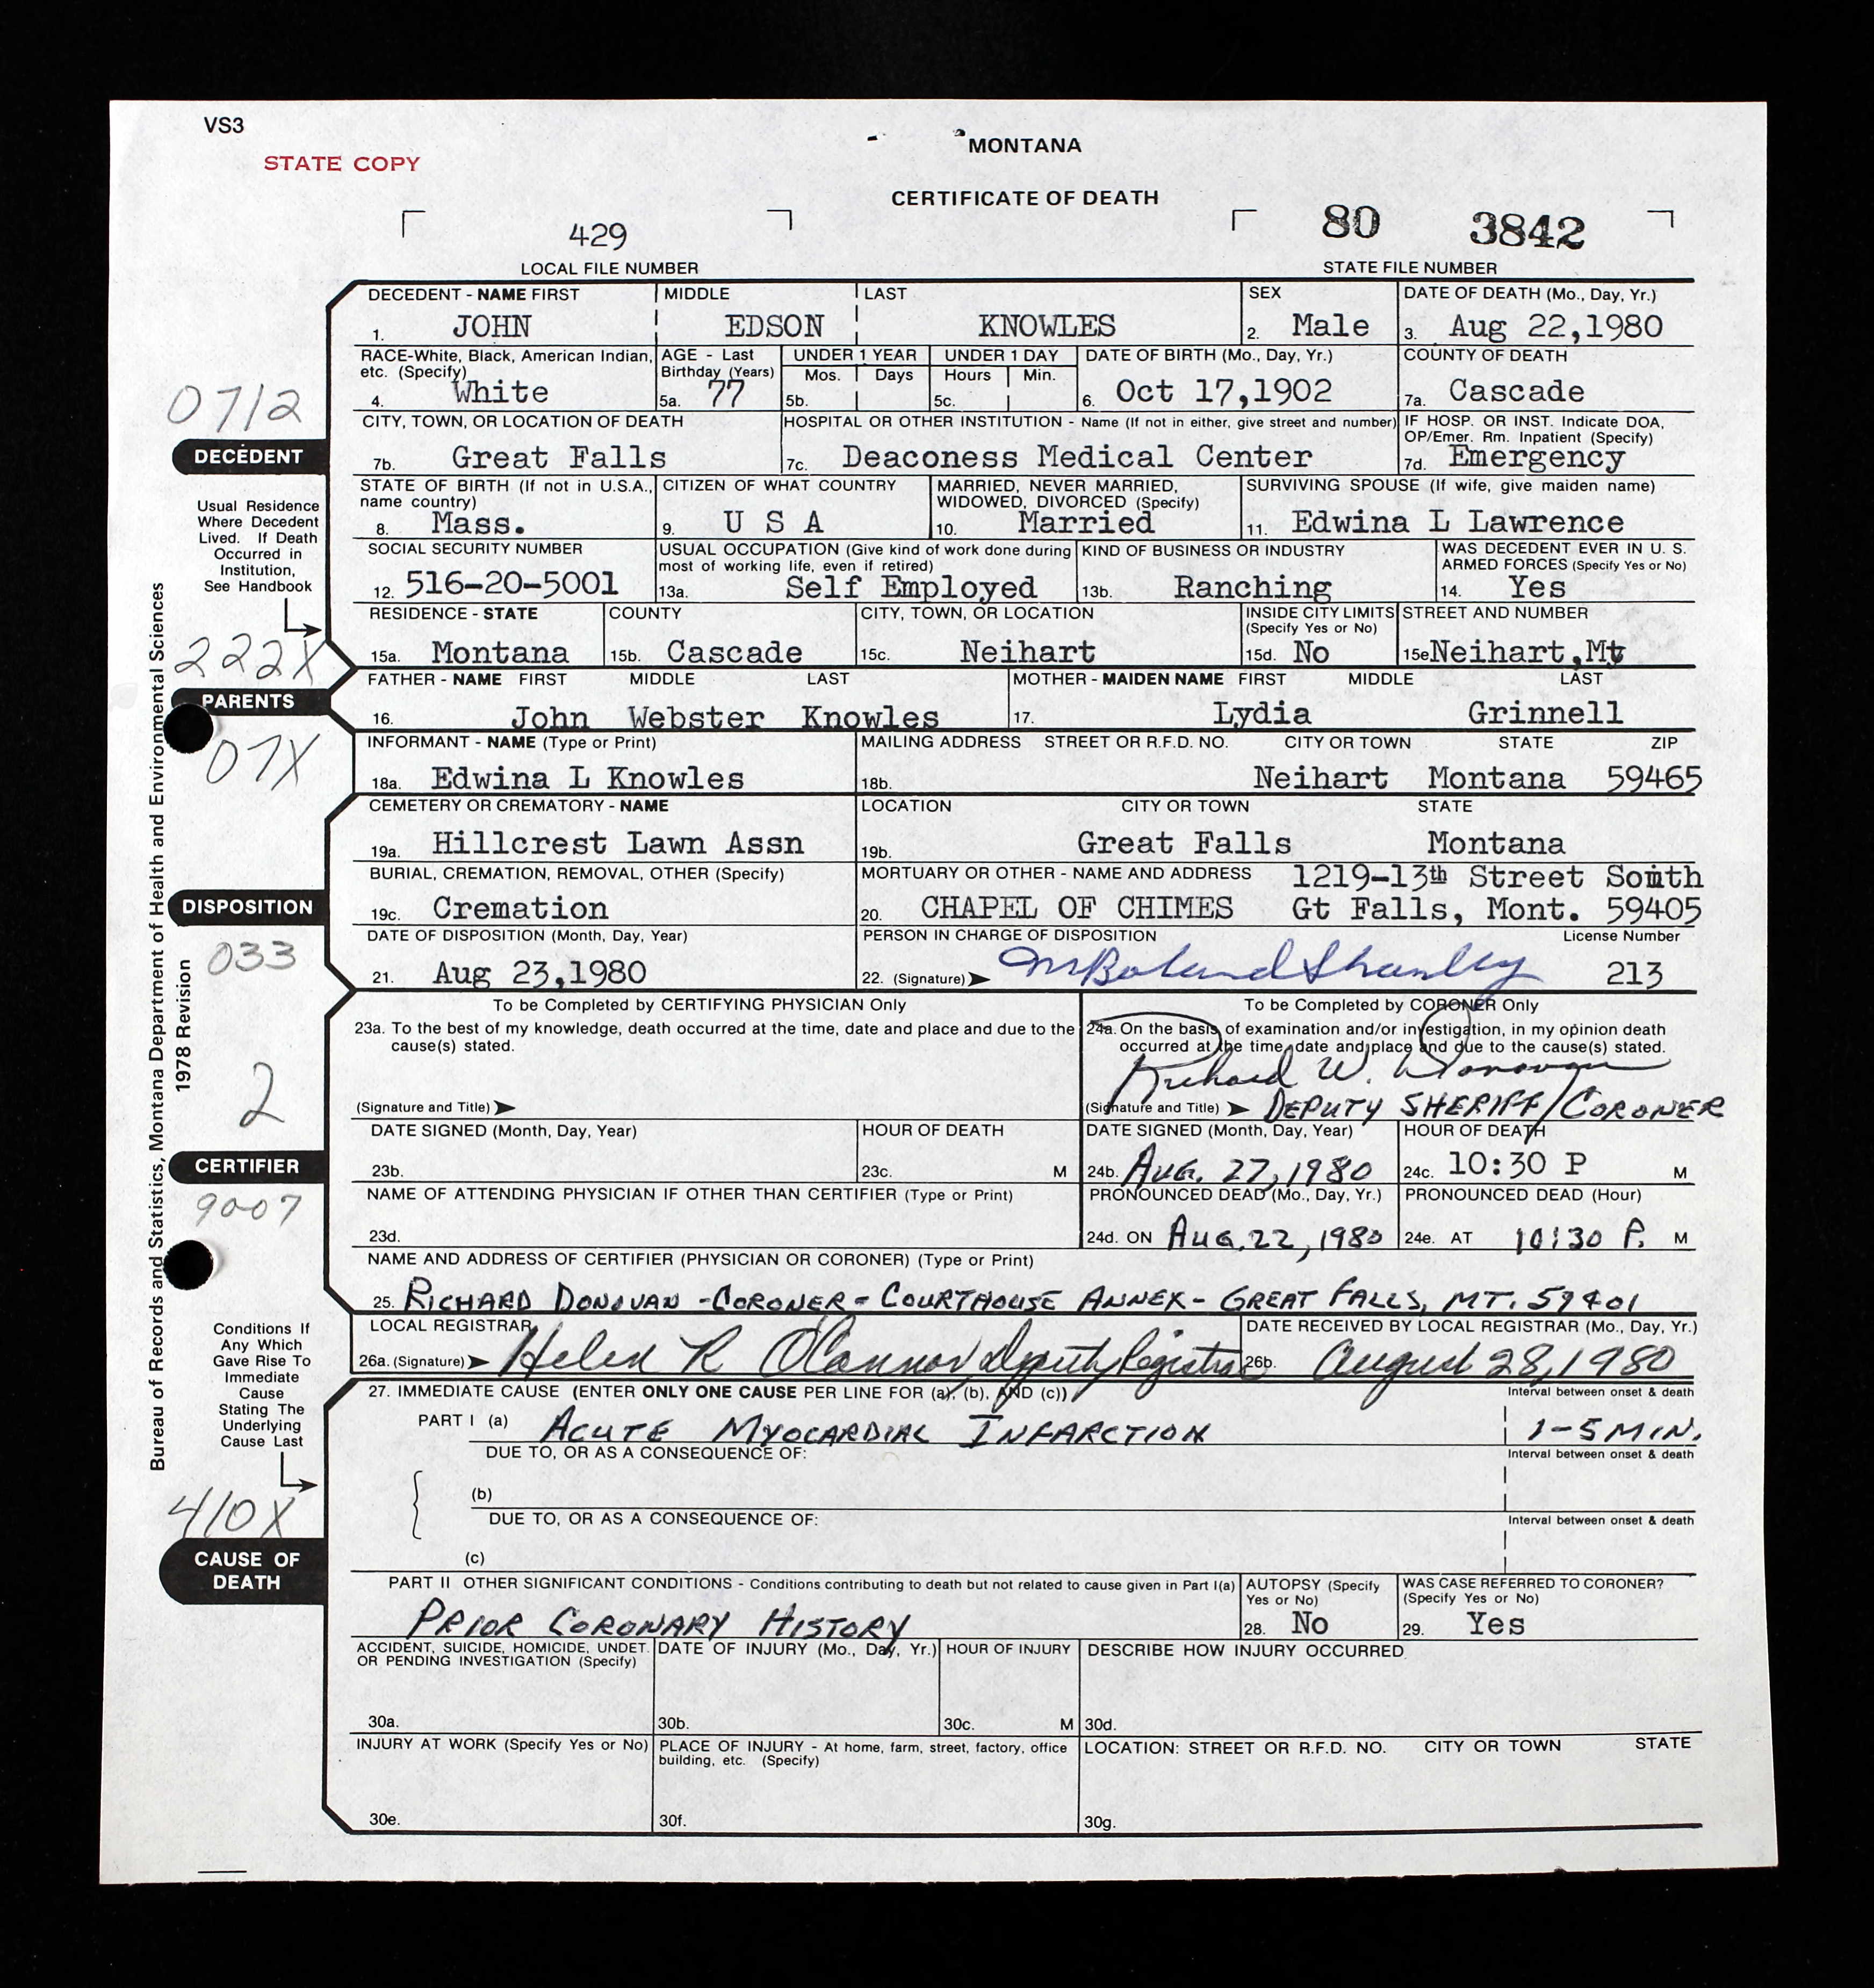 VS3
STATE COPY
MONTANA
CERTIFICATE OF DEATH
429
80 3842
LOCAL FILE NUMBER
STATE FILE NUMBER
DECEDENT - NAME FIRST MIDDLE LAST SEX DATE OF DEATH (Mo., Day, Yr.)
1. JOHN EDSON KNOWLES 2. Male 3. Aug 22,1980
RACE-White, Black, American Indian, etc. (Specify) AGE - Last Birthday (Years) UNDER 1 YEAR Mos. Days UNDER 1 DAY Hours Min. DATE OF BIRTH (Mo., Day, Yr.) COUNTY OF DEATH
4. White 5a. 77 5b. 5c. 6. Oct 17,1902 7a. Cascade
0712
DECEDENT
CITY, TOWN, OR LOCATION OF DEATH HOSPITAL OR OTHER INSTITUTION - Name (If not in either, give street and number) IF HOSP. OR INST. Indicate DOA, OP/Emer. Rm. Inpatient (Specify)
7b. Great Falls 7c. Deaconess Medical Center 7d. Emergency
STATE OF BIRTH (If not in U.S.A., name country) CITIZEN OF WHAT COUNTRY MARRIED, NEVER MARRIED, WIDOWED, DIVORCED (Specify) SURVIVING SPOUSE (If wife, give maiden name)
8. Mass. 9. U S A 10. Married 11. Edwina L Lawrence
Usual Residence
Where Decedent
Lived. If Death
Occurred in
Institution,
See Handbook
SOCIAL SECURITY NUMBER USUAL OCCUPATION (Give kind of work done during most of working life, even if retired) KIND OF BUSINESS OR INDUSTRY WAS DECEDENT EVER IN U. S. ARMED FORCES (Specify Yes or No)
12. 516-20-5001 13a. Self Employed 13b. Ranching 14. Yes
RESIDENCE - STATE COUNTY CITY, TOWN, OR LOCATION INSIDE CITY LIMITS (Specify Yes or No) STREET AND NUMBER
15a. Montana 15b. Cascade 15c. Neihart 15d. No 15e Neihart,Mt
222X
PARENTS
FATHER - NAME FIRST MIDDLE LAST MOTHER - MAIDEN NAME FIRST MIDDLE LAST
16. John Webster Knowles 17. Lydia Grinnell
07X
INFORMANT - NAME (Type or Print) MAILING ADDRESS STREET OR R.F.D. NO. CITY OR TOWN STATE ZIP
18a. Edwina L Knowles 18b. Neihart Montana 59465
CEMETERY OR CREMATORY - NAME LOCATION CITY OR TOWN STATE
19a. Hillcrest Lawn Assn 19b. Great Falls Montana
BURIAL, CREMATION, REMOVAL, OTHER (Specify) MORTUARY OR OTHER - NAME AND ADDRESS 1219-13th Street South
DISPOSITION
19c. Cremation 20. CHAPEL OF CHIMES Gt Falls, Mont. 59405
DATE OF DISPOSITION (Month, Day, Year) PERSON IN CHARGE OF DISPOSITION License Number
033
21. Aug 23,1980 22. (Signature) 213
To be Completed by CERTIFYING PHYSICIAN Only
23a. To the best of my knowledge, death occurred at the time, date and place and due to the
cause(s) stated.
(Signature and Title)
To be Completed by CORONER Only
24a. On the basis of examination and/or investigation, in my opinion death
occurred at the time, date and place and due to the cause(s) stated.
Richard W. Donovan
(Signature and Title) DEPUTY SHERIFF/CORONER
2
CERTIFIER
DATE SIGNED (Month, Day, Year) HOUR OF DEATH DATE SIGNED (Month, Day, Year) HOUR OF DEATH
23b. 23c. M 24b. AUG. 27, 1980 24c. 10:30 P M
9007
NAME OF ATTENDING PHYSICIAN IF OTHER THAN CERTIFIER (Type or Print) PRONOUNCED DEAD (Mo., Day, Yr.) PRONOUNCED DEAD (Hour)
23d. 24d. ON AUG. 22, 1980 24e. AT 10:30 P. M
NAME AND ADDRESS OF CERTIFIER (PHYSICIAN OR CORONER) (Type or Print)
25. RICHARD DONOVAN - CORONER - COURTHOUSE ANNEX - GREAT FALLS, MT. 59401
LOCAL REGISTRAR DATE RECEIVED BY LOCAL REGISTRAR (Mo., Day, Yr.)
26a. (Signature) Helen R O'Connor, Deputy Registrar 26b. August 28, 1980
Conditions If
Any Which
Gave Rise To
Immediate
Cause
Stating The
Underlying
Cause Last
27. IMMEDIATE CAUSE (ENTER ONLY ONE CAUSE PER LINE FOR (a), (b), AND (c)) Interval between onset & death
PART I (a) ACUTE MYOCARDIAL INFARCTION 1-5 MIN.
DUE TO, OR AS A CONSEQUENCE OF: Interval between onset & death
(b)
DUE TO, OR AS A CONSEQUENCE OF: Interval between onset & death
(c)
410X
CAUSE OF
DEATH
PART II OTHER SIGNIFICANT CONDITIONS - Conditions contributing to death but not related to cause given in Part I(a) AUTOPSY (Specify Yes or No) WAS CASE REFERRED TO CORONER? (Specify Yes or No)
PRIOR CORONARY HISTORY 28. No 29. Yes
ACCIDENT, SUICIDE, HOMICIDE, UNDET. OR PENDING INVESTIGATION (Specify) DATE OF INJURY (Mo., Day, Yr.) HOUR OF INJURY DESCRIBE HOW INJURY OCCURRED
30a. 30b. 30c. M 30d.
INJURY AT WORK (Specify Yes or No) PLACE OF INJURY - At home, farm, street, factory, office building, etc. (Specify) LOCATION: STREET OR R.F.D. NO. CITY OR TOWN STATE
30e. 30f. 30g.
Bureau of Records and Statistics, Montana Department of Health and Environmental Sciences
1978 Revision